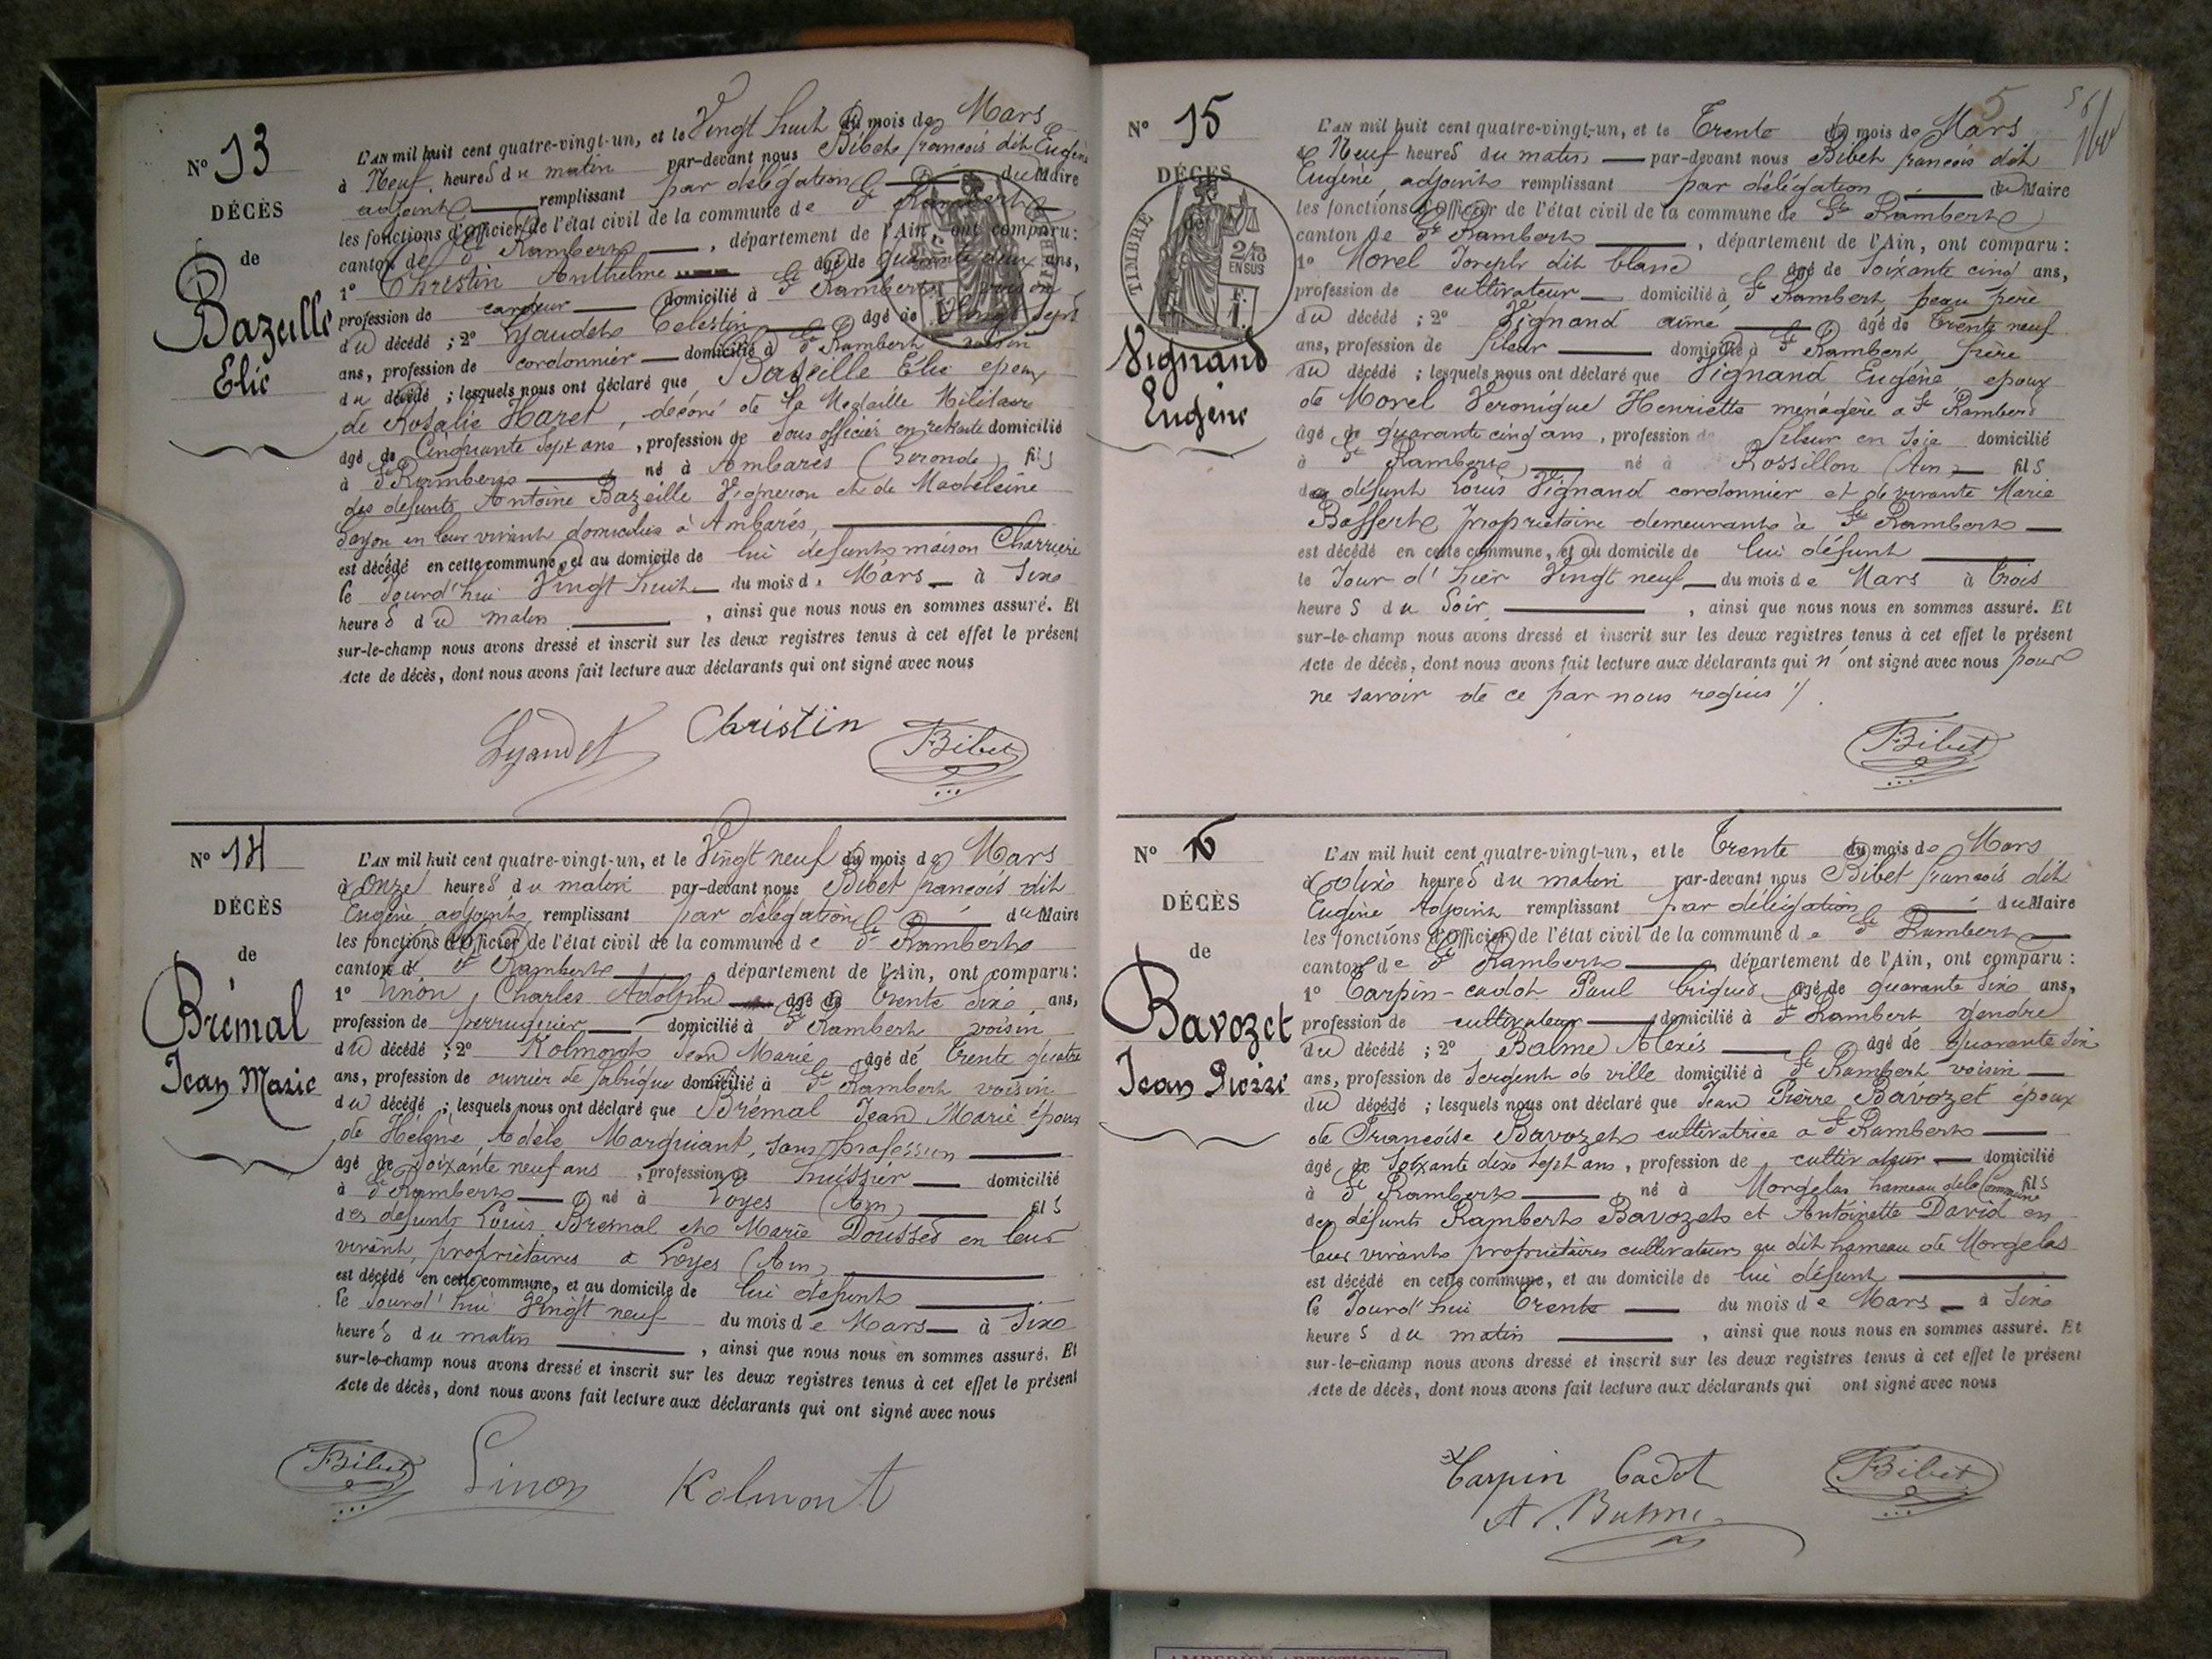 Nº 13
DÉCÈS
de
Bazeille
Elie
L'AN mil huit cent quatre-vingt-un, et le Vingt huit du mois de Mars
à Neuf heures du matin par-devant nous Bibet françois dit Eugène
adjoint remplissant par délégation du Maire
les fonctions d'Officier de l'état civil de la commune de St Rambert
canton de St Rambert, département de l'Ain, ont comparu:
1º Chrestin Anthelme âgé de quarante deux ans,
profession de cardeur domicilié à St Rambert voisin
du décédé ; 2º Lyaudet Celestin âgé de Vingt sept
ans, profession de cordonnier domicilié à St Rambert voisin
du décédé ; lesquels nous ont déclaré que Bazeille Élie epoux
de Rosalie Haret, décoré de la Medaille Militaire
âgé de Cinquante sept ans, profession de Sous officier en retraite domicilié
à St Rambert né à Ambarès (Gironde) fils
des défunts Antoine Bazeille Vigneron et de Madeleine
Sayon en leur vivant domiciliés à Ambarès,
est décédé en cette commune, et au domicile de lui défunt maison Charriere
le Jourd'hui Vingt huit du mois de Mars à Six
heures du matin, ainsi que nous nous en sommes assuré. Et
sur-le-champ nous avons dressé et inscrit sur les deux registres tenus à cet effet le présent
Acte de décès, dont nous avons fait lecture aux déclarants qui ont signé avec nous
Lyaudet Christin Bibet
Nº 14
DÉCÈS
de
Brémal
Jean Marie
L'AN mil huit cent quatre-vingt-un, et le Vingt neuf du mois de Mars
à Onze heures du matin par-devant nous Bibet francois dit
Eugène adjoint, remplissant par délégation du Maire
les fonctions d'Officier de l'état civil de la commune de St Rambert
canton de St Rambert, département de l'Ain, ont comparu:
1º Linon, Charles Adolphe âgé de trente Six ans,
profession de perruquier domicilié à St Rambert voisin
du décédé ; 2º Kolmont Jean Marie âgé de Trente quatre
ans, profession de ouvrier de fabrique domicilié à St Rambert voisin
du décédé ; lesquels nous ont déclaré que Brémal Jean Marie époux
de Hélène Adèle Marguiant, sans profession
âgé de Soixante neuf ans, profession de huissier domicilié
à St Rambert né à Loyes (Ain) fils
des défunts Louis Bremal et Marie Doussed en leur
vivant, propriétaires à Loyes (Ain)
est décédé en cette commune, et au domicile de lui défunt
le Jourd'hui Vingt neuf du mois de Mars à Six
heures du matin, ainsi que nous nous en sommes assuré. Et
sur-le-champ nous avons dressé et inscrit sur les deux registres tenus à cet effet le présent
Acte de décès, dont nous avons fait lecture aux déclarants qui ont signé avec nous
Bibet Linon Kolmont
5
Nº 15
DÉCÈS
de
TIMBRE
2/10
EN SUS
Vignand
Eugène
L'AN mil huit cent quatre-vingt-un, et le Trente du mois de Mars
à Neuf heures du matin par-devant nous Bibet françois dit
Eugène, adjoint remplissant par délégation du Maire
les fonctions d'Officier de l'état civil de la commune de St Rambert
canton de St Rambert, département de l'Ain, ont comparu:
1º Morel Joseph dit blanc âgé de Soixante cinq ans,
profession de cultivateur domicilié à St Rambert, beau père
du décédé ; 2º Vignand aimé âgé de trente neuf
ans, profession de fileur domicilié à St Rambert, frère
du décédé ; lesquels nous ont déclaré que Vignand Eugène, epoux
de Morel Veronique Henriette menagère a St Rambert
âgé de quarante cinq ans, profession de fileur en Soie domicilié
à St Rambert né à Rossillon (Ain) fils
de défunt Louis Vignand cordonnier et de vivante Marie
Boffert, propriétaire demeurant à St Rambert
est décédé en cette commune, et au domicile de lui défunt
le Jour d'hier Vingt neuf du mois de Mars à trois
heures du Soir, ainsi que nous nous en sommes assuré. Et
sur-le-champ nous avons dressé et inscrit sur les deux registres tenus à cet effet le présent
Acte de décès, dont nous avons fait lecture aux déclarants qui n'ont signé avec nous pour
ne savoir de ce par nous requis
Bibet
Nº 16
DÉCÈS
de
Bavozet
Jean Pierre
L'AN mil huit cent quatre-vingt-un, et le Trente du mois de Mars
à Dix heures du matin par-devant nous Bibet francois dit
Eugène Adjoint remplissant par délégation du Maire
les fonctions d'Officier de l'état civil de la commune de St Rambert
canton de St Rambert, département de l'Ain, ont comparu:
1º Tarpin-cadot Paul âgé de quarante Six ans,
profession de cultivateur domicilié à St Rambert gendre
du décédé ; 2º Balme Alexis âgé de quarante Six
ans, profession de Sergent de ville domicilié à St Rambert voisin
du décédé ; lesquels nous ont déclaré que Jean Pierre Bavozet époux
de Françoise Bavozet cultivatrice a St Rambert
âgé de Soixante dix Sept ans, profession de cultivateur domicilié
à St Rambert né à Morgelas hameau de la Commune fils
des défunts Rambert Bavozet et Antoinette David en
leur vivants propriétaires cultivateurs au dit hameau de Morgelas
est décédé en cette commune, et au domicile de lui défunt
le Jourd'hui Trente du mois de Mars à Six
heures du matin, ainsi que nous nous en sommes assuré. Et
sur-le-champ nous avons dressé et inscrit sur les deux registres tenus à cet effet le présent
Acte de décès, dont nous avons fait lecture aux déclarants qui ont signé avec nous
Tarpin Cadot Bibet